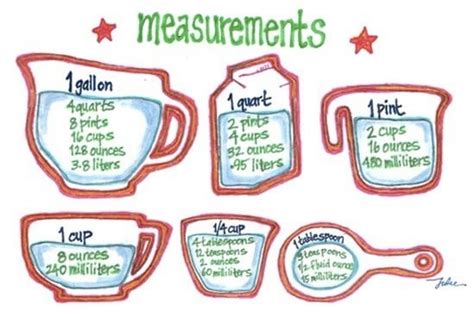 measurements
1 gallon
4 quarts
8 pints
16 cups
128 ounces
3.8 liters
1 quart
2 pints
4 cups
32 ounces
.95 liters
1 pint
2 cups
16 ounces
480 milliliters
1 cup
8 ounces
240 milliliters
1/4 cup
4 tablespoons
12 teaspoons
2 ounces
60 milliliters
1 tablespoon
3 teaspoons
1/2 fluid ounce
15 milliliters
Julie